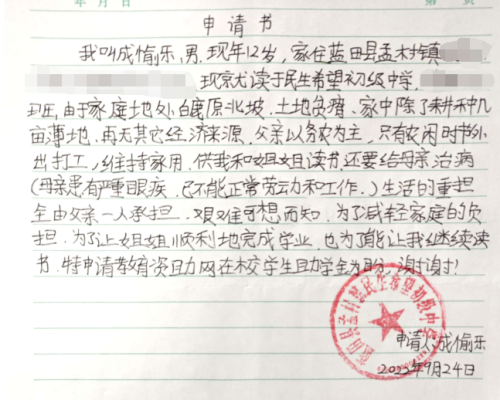 年 月 日 第 页
申请书
我叫成愉乐,男,现年12岁,家住蓝田县孟村镇
现就读于民生希望初级中学,
班,由于家庭地处白鹿原北坡,土地贫瘠,家中除了耕种几
亩薄地,再无其它经济来源,父亲以务农为主,只有农闲时书外
出打工,维持家用,供我和姐姐读书,还要给母亲治病
(母亲患有严重眼疾,已不能正常劳动和工作。)生活的重担
全由父亲一人承担,艰难可想而知,为了减轻家庭的负
担,为了让姐姐顺利地完成学业,也为了能让我继续读
书,特申请教育资助网在校学生助学金为盼,谢谢!
蓝田县孟村镇民生希望初级中学
申请人:成愉乐
2022年9月24日